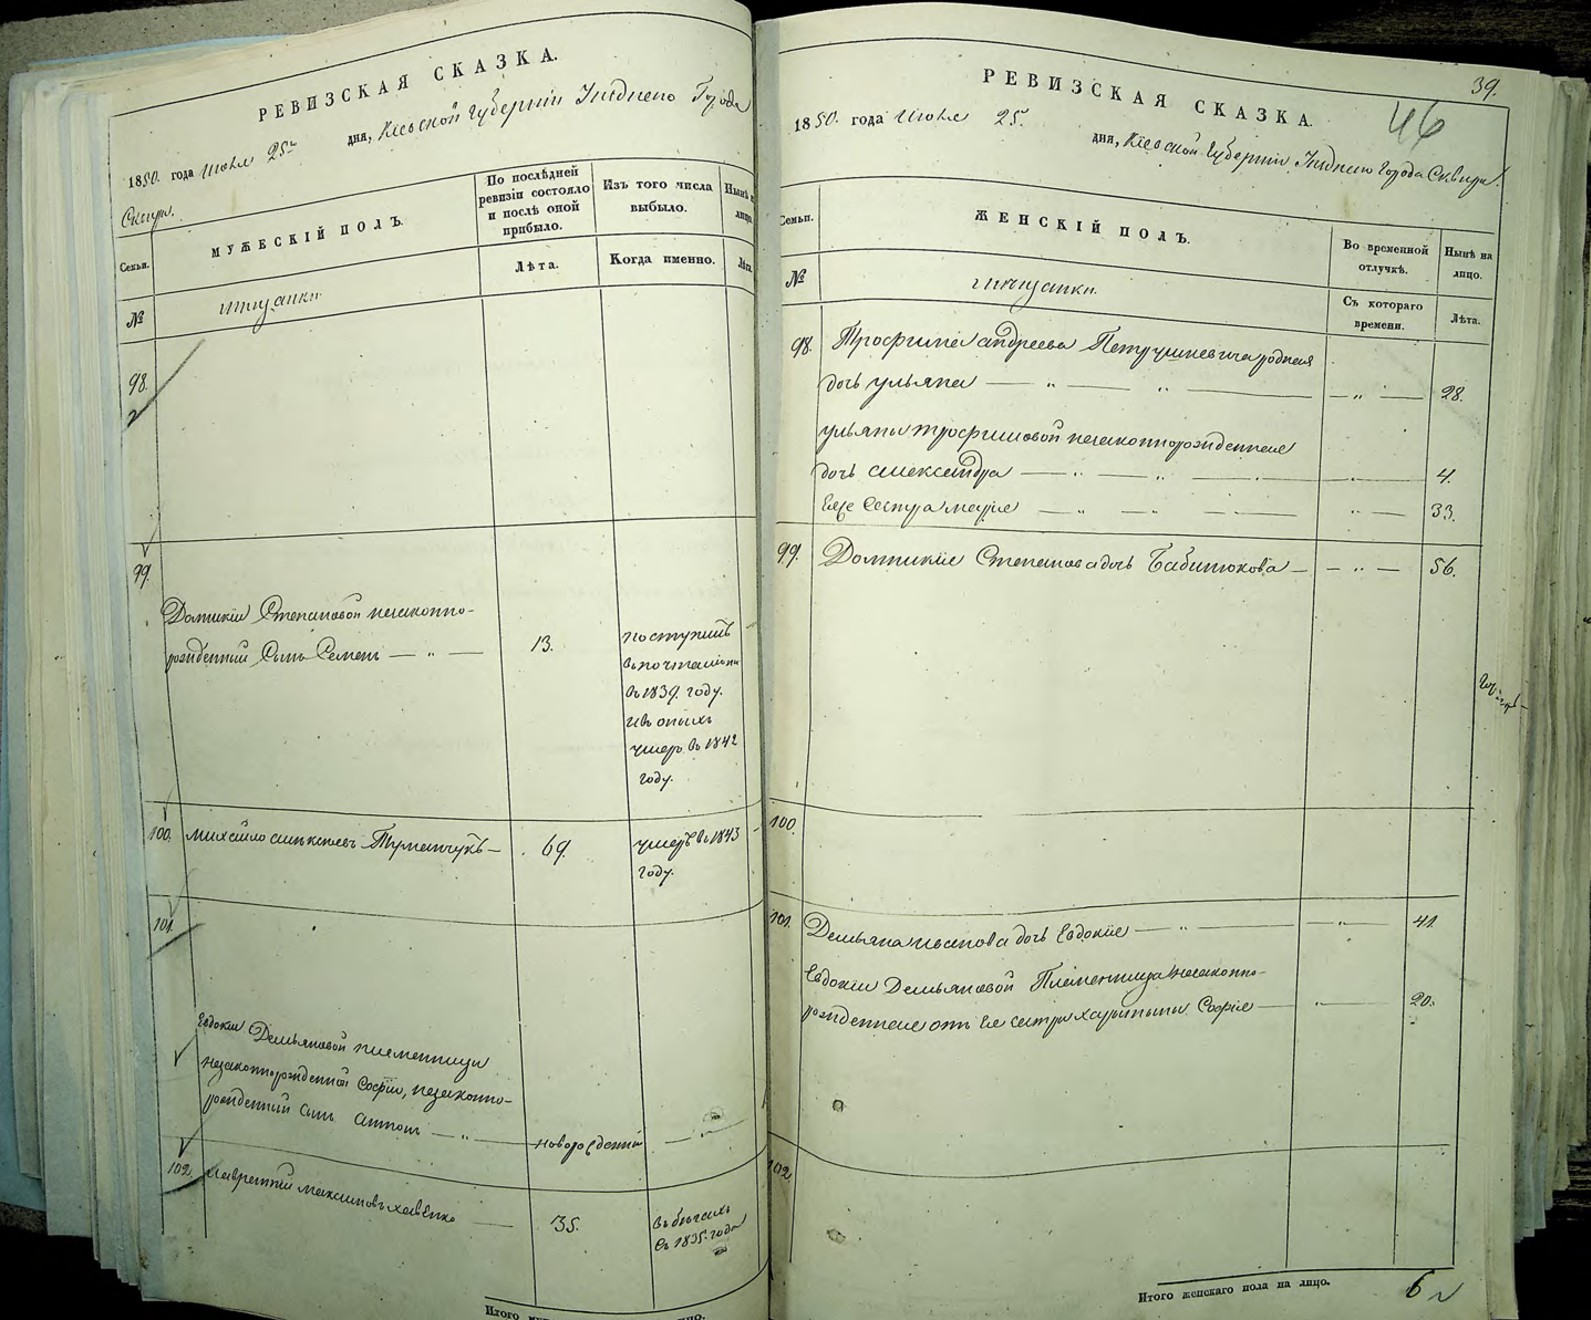 РЕВИЗСКАЯ СКАЗКА.
1850. года Июня 25 дня, Кіевской Губерніи Уѣднаго Города
Сквиры.
Семьи.
МУЖЕСКІЙ ПОЛЪ.
По послѣдней
ревизіи состояло
и послѣ оной
прибыло.
Изъ того числа
выбыло.
Нынѣ
лицо
Лѣта.
Когда именно.
Лѣта
№
98.
99.
Домникіи Степановой незаконно-
рожденный Сынъ Семенъ — " —
13.
поступилъ
въ 1839. году.
и въ оныхъ
умеръ въ 1842
году.
100.
Михайло Алексѣевъ Туманчукъ —
69.
умеръ въ 1843
году.
101.
Евдокіи Демьяновой племенницы
незаконнорожденной Софіи, незаконно-
рожденный сынъ Антонъ — " —
новорожденный
102.
Лаврентій Максимовъ
35.
въ бѣгахъ
съ 1835. года
Итого
39.
46
РЕВИЗСКАЯ СКАЗКА.
1850. года Июня 25. дня, Кіевской Губерніи Уѣднаго Города Сквиры.
Семьи.
ЖЕНСКІЙ ПОЛЪ.
Во временной
отлучкѣ.
Нынѣ на
лицо.
№
Съ котораго
времени.
Лѣта.
98. Трофима Андреева Петрушкевича родная
дочь Ульяна — " — " — — " — 28.
Ульяны Трофимовой незаконнорожденная
дочь Александра — " — " — 4.
Ея сестра Марія — " — " — " — 33.
99. Домникія Степанова дочь Бабинюкова — — " — 56.
100.
101. Демьяна Иванова дочь Евдокія — " — — " — 41.
Евдокіи Демьяновой Племенница незаконно-
рожденная отъ ея сестры Харытыны Софія — — " — 20.
102.
Итого женскаго пола на лицо. 6